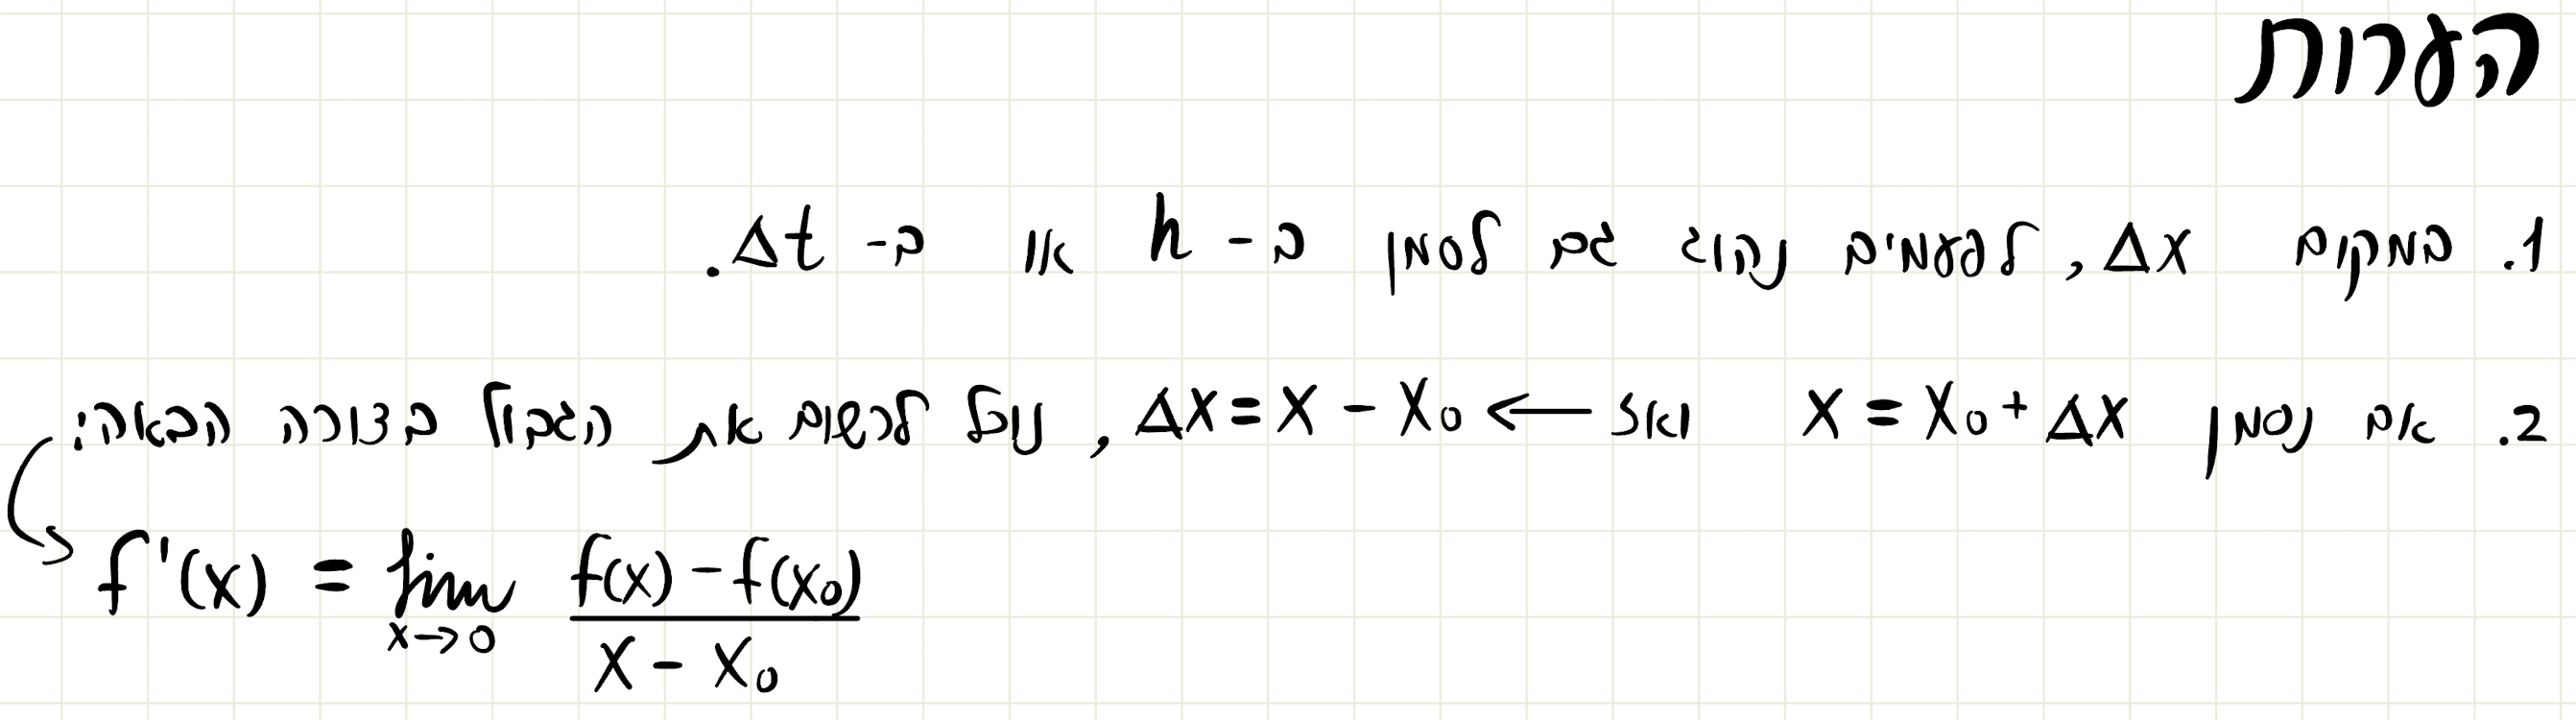 הערות
1. במקום Δx, לפעמים נהוג גם לסמן ב- h או ב- Δt.
2. אם נסמן x = x₀ + Δx ואז ← Δx = x - x₀, נוכל לרשום את הגבול בצורה הבאה:
f'(x) = lim x→0 (f(x) - f(x₀)) / (x - x₀)